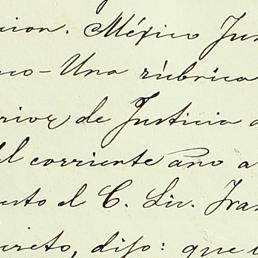 cion. México Jun
co - Una rúbrica
rior de Justicia a
del corriente año a
esto el C. Lic. Fran
creto, dijo: que